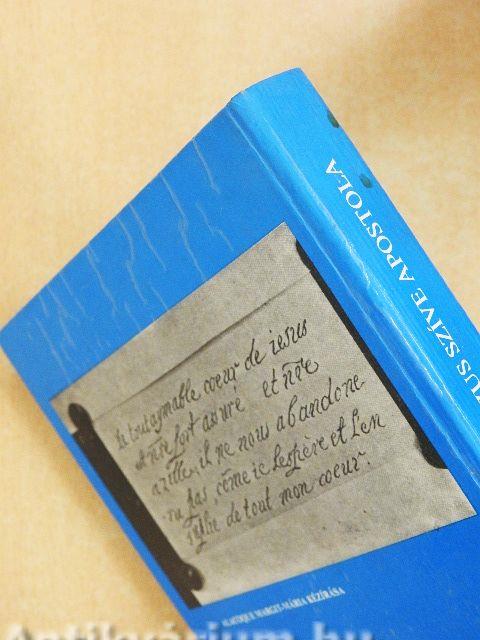 US SZÍVE APOSTOLA
Le tout aymable coeur de iesus
est nr̃e fort assure et nr̃e
azille, il ne nous abandone
pas, cõme ie l'espère et l'en
de tout mon coeur.
ALACOQUE MARGIT-MÁRIA KÉZÍRÁSA
Antikvárium.hu